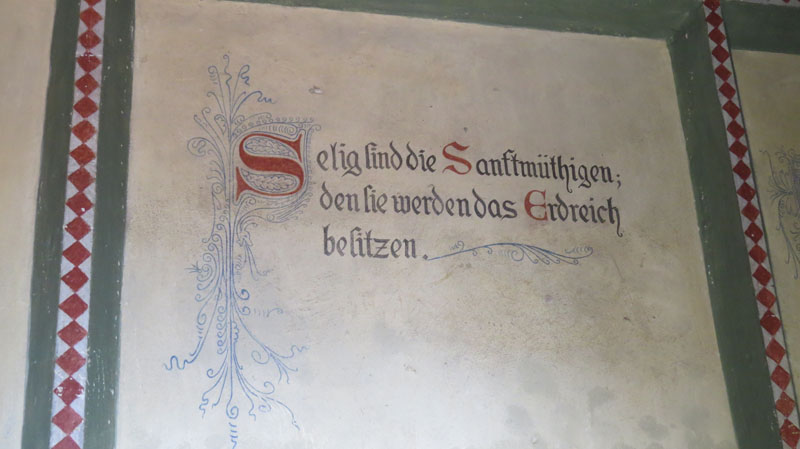 Selig sind die Sanftmüthigen;
den sie werden das Erdreich
besitzen.